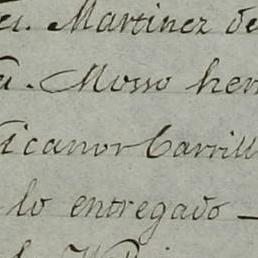 Martinez de
Mosso her
icanor Carrill
lo entregado —